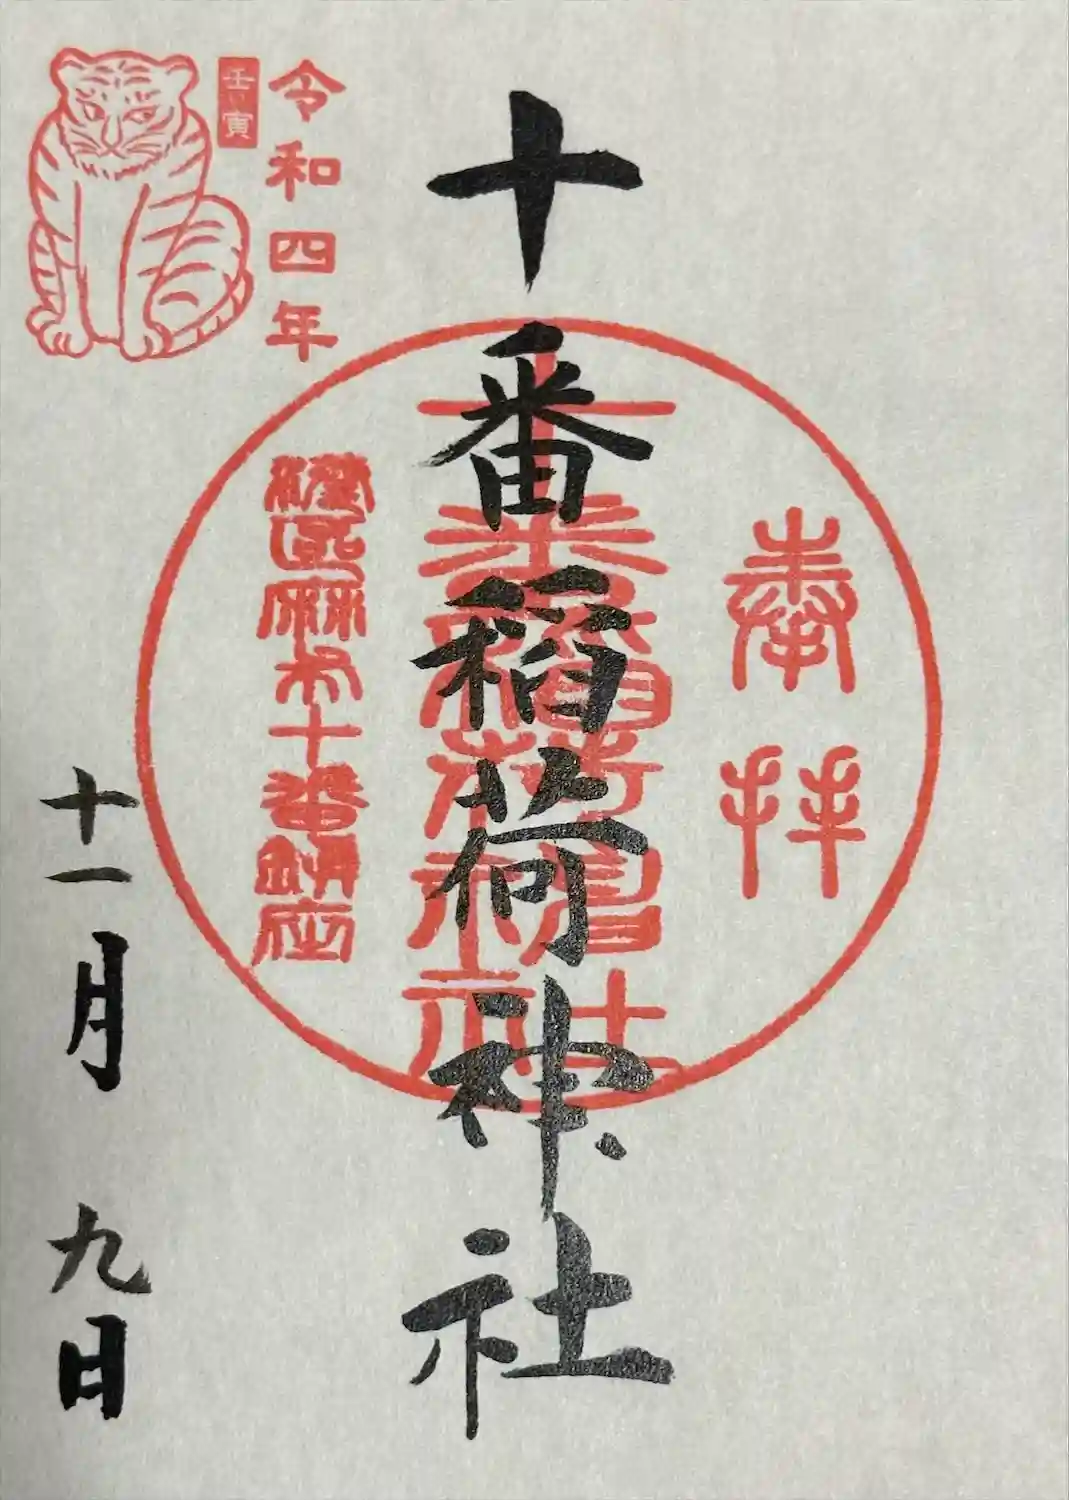 奉拝
十番稲荷神社
十番稲荷神社
港区麻布十番鎮座
令和四年
壬寅
十一月九日